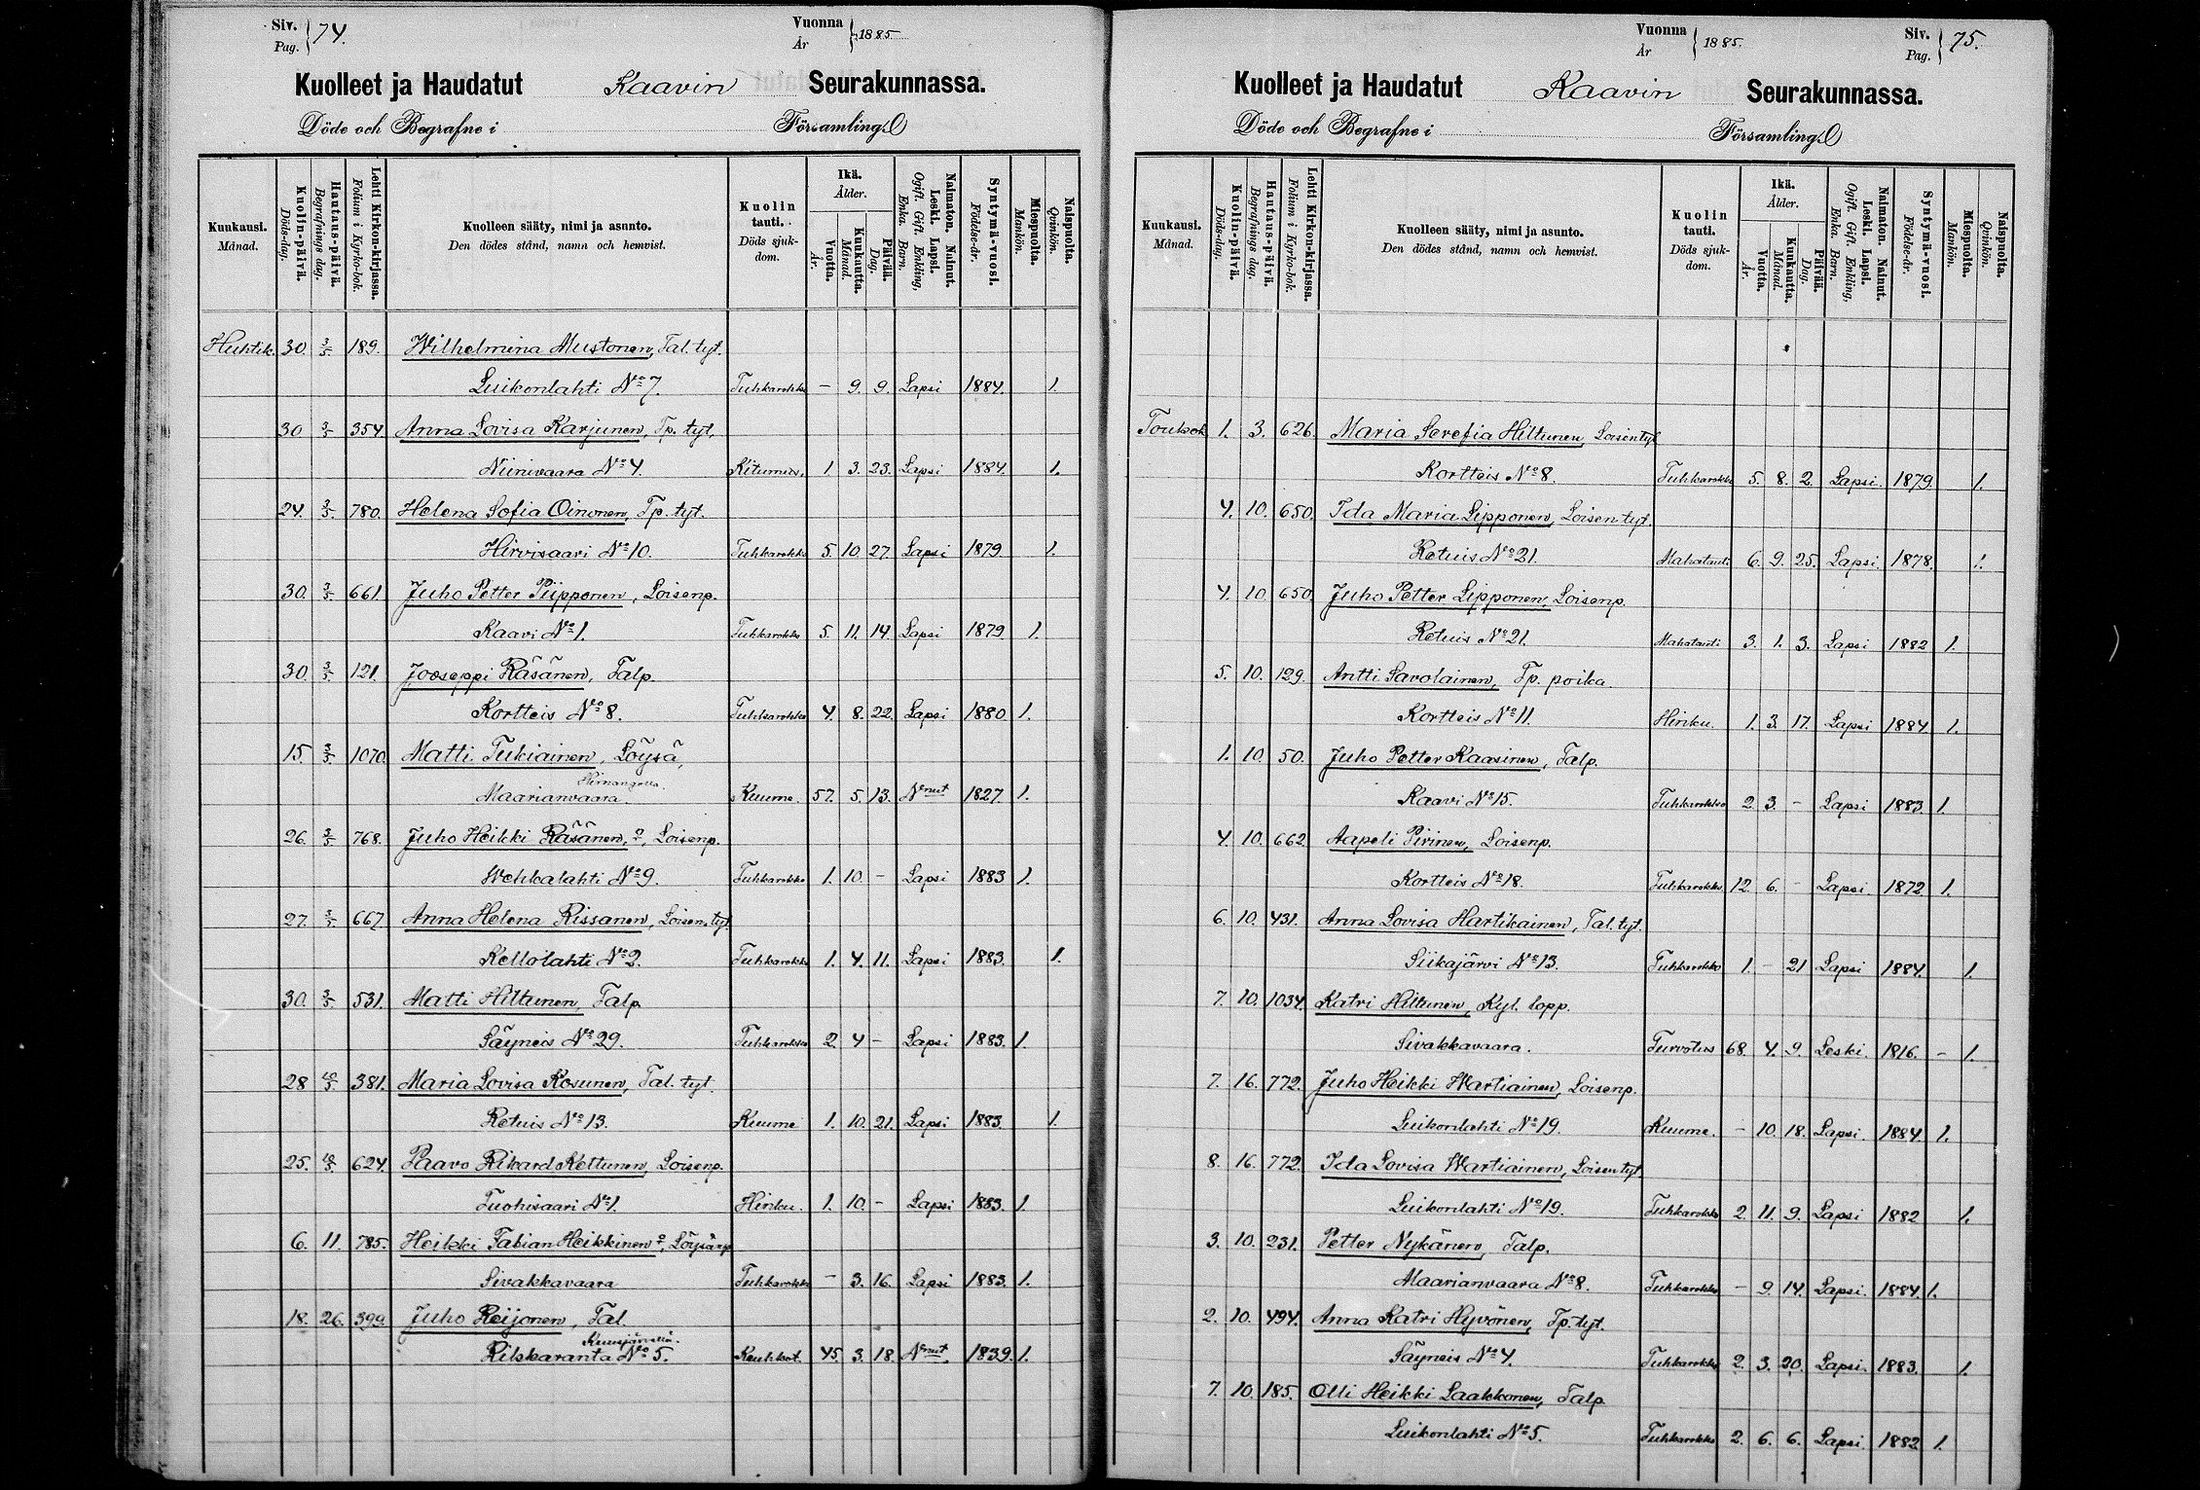 Siv. Pag. 74.
Vuonna År 1885
Kuolleet ja Haudatut Kaavin Seurakunnassa.
Döde och Begrafne i Församling
Kuukausi. Månad.
Kuolin-päivä. Döds-dag.
Hautaus-päivä. Begrafnings dag.
Lehti Kirkon-kirjassa. Folium i Kyrko-bok.
Kuolleen sääty, nimi ja asunto.
Den dödes stånd, namn och hemvist.
Kuolin tauti. Döds sjukdom.
Ikä. Ålder.
Vuotta. År.
Kuukautta. Månad.
Päivää. Dag.
Naimaton. Nainut. Leski. Lapsi. Ogift. Gift. Enkling, Enka. Barn.
Syntymä-vuosi. Födelse-år.
Miespuolta. Mankön.
Naispuolta. Qvinkön.
Huhtik. 30. 3/5 189. Wilhelmina Mustonen, Tal. tyt.
Luikonlahti No 7. Tuhkarokko – 9. 9. Lapsi 1884. 1.
30 3/5 354 Anna Lovisa Karjunen, Tp. tyt.
Niinivaara No 4. Kitumus, 1 3. 23. Lapsi 1884. 1.
24. 3/5 780. Helena Sofia Oinonen, Tp. tyt.
Hirvisaari No 10. Tuhkarokko 5. 10. 27. Lapsi 1879. 1.
30. 3/5 661. Juho Petter Piipponen, Loisenp.
Kaavi No 1. Tuhkarokko 5. 11. 14. Lapsi 1879 1.
30. 3/5 121. Jooseppi Räsänen, Talp.
Kortteis No 8. Tuhkarokko 4. 8. 22. Lapsi 1880 1.
15. 3/5 1070. Matti Tukiainen, Löysä,
Maarianvaara. Kuume. 57. 5. 13. Nnut 1827. 1.
26. 3/5 768. Juho Heikki Räsänen, o, Loisenp.
Wehkalahti No 9. Tuhkarokko 1. 10. – Lapsi 1883 1.
27. 3/5 667. Anna Helena Rissanen, Loisen. tyt.
Kellolahti No 2. Tuhkarokko 1. 4. 11. Lapsi 1883. 1.
30. 3/5 531. Matti Hiltunen, Talp.
Säyneis No 29. Tuhkarokko 2. 4 – Lapsi 1883. 1.
28 10/5 381. Maria Lovisa Kosunen, Tal. tyt.
Retuis No 13. Kuume 1. 10. 21. Lapsi 1883. 1.
25. 10/5 624. Paavo Rikard Kettunen, Loisenp.
Tuohisaari No 1. Hinku. 1. 10. – Lapsi 1883. 1.
6. 11. 785. Heikki Fabian Heikkinen o, Löysänp
Sivakkavaara Tuhkarokko – 3. 16. Lapsi 1883. 1.
18. 26. 399. Juho Reijonen, Tal.
Kuusjärvellä.
Rikkaranta No 5. Keuhkot. 45. 3. 18. Nnut. 1839. 1.
Vuonna År 1885.
Siv. Pag. 75.
Kuolleet ja Haudatut Kaavin Seurakunnassa.
Döde och Begrafne i Församling
Kuukausi. Månad.
Kuolin-päivä. Döds-dag.
Hautaus-päivä. Begrafnings dag.
Lehti Kirkon-kirjassa. Folium i Kyrko-bok.
Kuolleen sääty, nimi ja asunto.
Den dödes stånd, namn och hemvist.
Kuolin tauti. Döds sjukdom.
Ikä. Ålder.
Vuotta. År.
Kuukautta. Månad.
Päivää. Dag.
Naimaton. Nainut. Leski. Lapsi. Ogift. Gift. Enkling, Enka. Barn.
Syntymä-vuosi. Födelse-år.
Miespuolta. Mankön.
Naispuolta. Qvinkön.
Toukok 1. 3. 626. Maria Serefia Hiltunen, Loisen tyt
Kortteis No 8. Tuhkarokko 5. 8. 2. Lapsi. 1879. 1.
4. 10. 650. Ida Maria Lipponen, Loisen tyt.
Retuis No 21. Mahatauti 6. 9. 25. Lapsi. 1878. 1.
4. 10 650. Juho Petter Lipponen, Loisenp.
Retuis No 21. Mahatauti 3. 1. 3. Lapsi 1882 1.
5. 10. 129. Antti Savolainen, Tp. poika.
Kortteis No 11. Hinku. 1. 3. 17. Lapsi 1884 1.
1. 10 50. Juho Petter Kaasinen, Talp.
Kaavi No 15. Tuhkarokko 2. 3. – Lapsi 1883. 1.
4. 10. 662. Aapeli Pirinen, Loisenp.
Kortteis No 18. Tuhkarokko 12. 6. – Lapsi. 1872. 1.
6. 10. 431. Anna Lovisa Hartikainen, Tal. tyt.
Siikajärvi No 13. Tuhkarokko 1. – 21 Lapsi 1884. 1.
7. 10. 1034. Katri Hiltunen, Kyl. lopp.
Sivakkavaara. Turvotus 68. 4. 9. Leski. 1816. – 1.
7. 16. 772. Juho Heikki Wartiainen, Loisenp.
Luikonlahti No 19. Kuume. – 10. 18. Lapsi. 1884 1.
8. 16. 772. Ida Lovisa Wartiainen, Loisen tyt.
Luikonlahti No 19. Tuhkarokko 2. 11. 9. Lapsi 1882 1.
3. 10. 231. Petter Nykänen, Talp.
Maarianvaara No 8. Tuhkarokko – 9. 14. Lapsi. 1884. 1.
2. 10. 494. Anna Katri Hyvönen, Tp. tyt.
Säyneis No 4. Tuhkarokko 2. 3. 20. Lapsi. 1883. 1.
7. 10. 185. Olli Heikki Laakkonen, Talp
Luikonlahti No 5. Tuhkarokko 2. 6. 6. Lapsi. 1882 1.